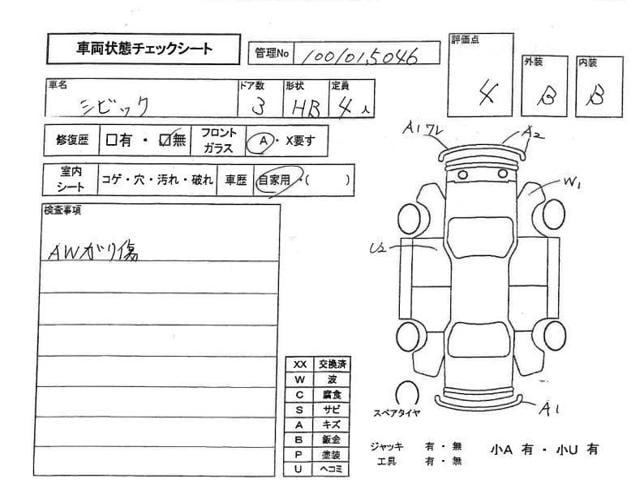 車両状態チェックシート
管理No 100101,5046
評価点 4
外装 B
内装 B
車名 シビック
ドア数 3
形状 HB
定員 4人
修復歴 □有・☑無
フロントガラス A・X要す
室内シート コゲ・穴・汚れ・破れ
車歴 自家用・( )
検査事項
AWガリ傷
A1ワレ
A2
W1
U2
A1
XX 交換済
W 波
C 腐食
S サビ
A キズ
B 鈑金
P 塗装
U ヘコミ
スペアタイヤ
ジャッキ 有・無
工具 有・無
小A 有・小U 有